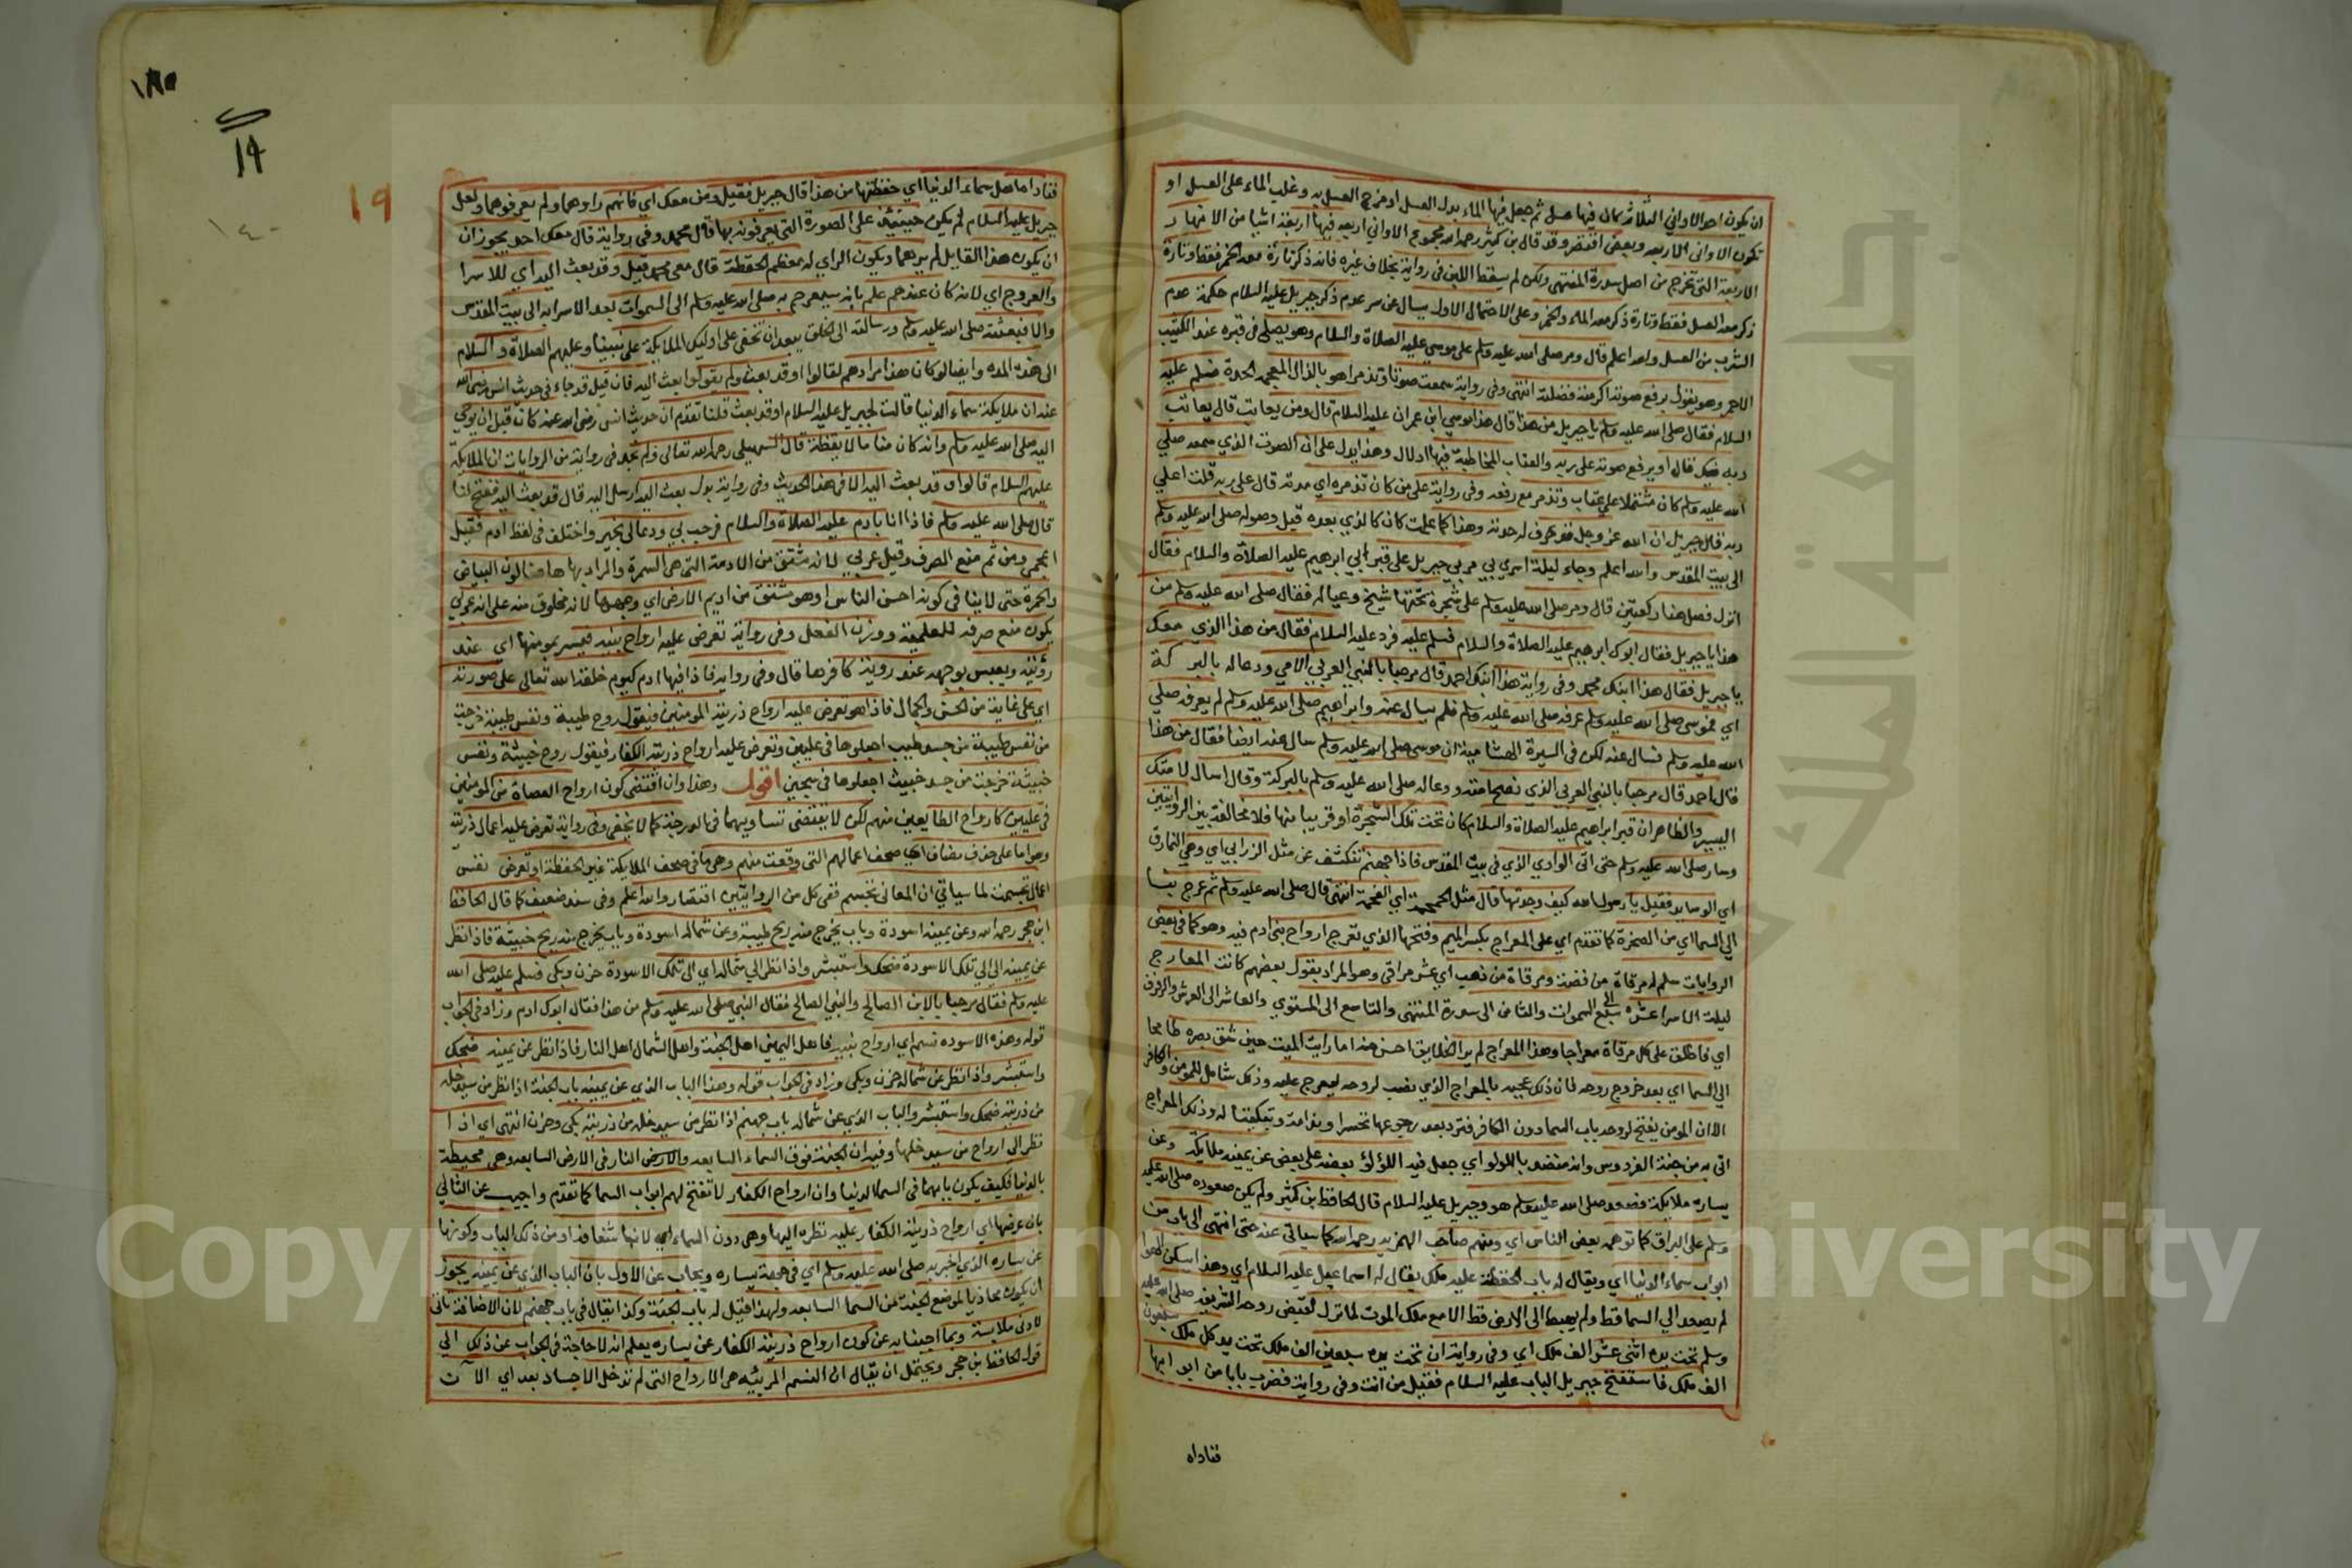 ان يكون احد الاواني الثلاثة كان فيها عسل ثم جعل فيها الماء بدل العسل او مزج العسل به وغلب الماء على العسل او
تكون الاواني الاربعة وبعض اقتصر وقد قال بن كثير رحمه الله مجموع الاواني اربعة فيها اربعة اشيا من الانهار
الاربعة التي تخرج من اصل سدرة المنتهى ولكن لم يسقط اللبن في رواية بخلاف غيره فانه ذكر تارة معه الخمر فقط وتارة
ذكر معه العسل فقط وتارة ذكر معه الماء والخمر وعلى الاحتمال الاول يسال عن سر عدم ذكر جبريل عليه السلام حكمة عدم
الشرب من العسل والله اعلم قال ومر صلى الله عليه وسلم على موسي عليه الصلاة والسلام وهو يصلي في قبره عند الكثيب
الاحمر وهو يقول برفع صوته اكرمته فضلته انتهى وفي رواية سمعت صوتا وتذمرا هو بالذال المعجمة الحدة فسلم عليه
السلام فقال صلى الله عليه وسلم يا جبريل من هذا قال هذا موسي ابن عمران عليه السلام قال ومن يعاتب قال يعاتب
ربه فيك قال او يرفع صوته على ربه والعتاب المخاطبة فيها ادلال وهذا يدل على ان الصوت الذي سمعه صلي
الله عليه وسلم كان مشتملا على عتاب وتذمر مع رفعه وفي رواية على من كان تذمره اي حدته قال على ربه قلت اعلي
ربه قال جبريل ان الله عز وجل قد عرف له حدته وهذا كما علمت كان كالذي بعده قبل وصوله صلى الله عليه وسلم
الى بيت المقدس والله اعلم وجاء ليلة اسري بي مر بي جبريل على قبر ابي ابرهيم عليه الصلاة والسلام فقال
انزل فصل هنا ركعتين قال ومر صلى الله عليه وسلم على شجرة تحتها شيخ وعياله فقال صلى الله عليه وسلم من
هذا يا جبريل فقال ابوك ابرهيم عليه الصلاة والسلام فسلم عليه فرد عليه السلام فقال من هذا الذي معك
يا جبريل فقال هذا ابنك محمد وفي رواية هذا ابنك احمد قال مرحبا بالنبي العربي الامي ودعا له بالبركة
اي فموسى صلى الله عليه وسلم عرفه صلى الله عليه وسلم فلم يسال عنه وابراهيم صلى الله عليه وسلم لم يعرفه صلي
الله عليه وسلم فسال عنه لكن في السيرة الهشامية ان موسى صلى الله عليه وسلم سال عنه ايضا فقال من هذا
قال احمد قال مرحبا بالنبي العربي الذي نصح امته ودعا له صلى الله عليه وسلم بالبركة وقال اسال لامتك
اليسير والظاهر ان قبر ابراهيم عليه الصلاة والسلام كان تحت تلك الشجرة او قريبا منها فلا مخالفة بين الروايتين
وسار صلى الله عليه وسلم حتى اتى الوادي الذي في بيت المقدس فاذا جهنم تنكشف عن مثل الزرابي اي وهي النمارق
اي الوسايد فقيل يا رسول الله كيف وجدتها قال مثل الحممة اي الفحمة انتهى قال صلى الله عليه وسلم ثم عرج بنا
الى السما اي من الصخرة كما تقدم اي على المعراج بكسر الميم وفتحها الذي تعرج ارواح بني ادم فيه وهو كما في بعض
الروايات سلم له مرقاة من فضة ومرقاة من ذهب اي عشر مراقي وهو المراد بقول بعضهم كانت المعارج
ليلة الاسرا عشرة سبع الى السموات والثامن الى سدرة المنتهى والتاسع الى المستوي والعاشر الى العرش والرفرف
اي فاطلق على كل مرقاة معراجا وهذا المعراج لم ير الخلايق احسن منه اما رايت الميت حين شق بصره طامحا
الى السما اي بعد خروج روحه فان ذلك عجبه بالمعراج الذي نصب لروحه لتعرج عليه وذلك شامل للمومن والكافر
الا ان المومن يفتح لروحه باب السما دون الكافر فترد بعد رجوعها تحسرا وندامة وتبكيتا له وذلك المعراج
اتى به من جنة الفردوس وانه منضد باللولو اي جعل فيه اللؤلؤ بعضه على بعض عن يمينه ملايكة وعن
يساره ملايكة فصعد صلى الله عليه وسلم هو وجبريل عليه السلام قال الحافظ بن كثير ولم يكن صعوده صلى الله عليه
وسلم على البراق كما توهمه بعض الناس اي ومنهم صاحب الهمزية رحمه الله كما سياتي عنه حتى انتهى الى باب من
ابواب سماء الدنيا اي ويقال له باب الحفظة عليه ملك يقال له اسماعيل عليه السلام اي وهذا يسكن الهوا
لم يصعد الي السما قط ولم يهبط الى الارض قط الا مع ملك الموت لما نزل لقبض روحه الشريفة صلى الله عليه
وسلم تحت يده اثني عشر الف ملك اي وفي رواية ان تحت يده سبعين الف ملك تحت يد كل ملك سبعون
الف ملك فاستفتح جبريل الباب عليه السلام فقيل من انت وفي رواية فضرب بابا من ابوابها
فناداه
١٩
١٩
فناداه اهل سماء الدنيا اي حفظتها من هذا قال جبريل فقيل ومن معك اي فانهم راوهما ولم يعرفوهما ولعل
جبريل عليه السلام لم يكن حينئذ على الصورة التي يعرفونه بها قال محمد وفي رواية قال معك احد يجوز ان
ان يكون هذا القايل لم يرهما ويكون الراي له معظم الحفظة قال معي محمد قيل وقد بعث اليه اي للاسرا
والعروج اي لانه كان عندهم علم بانه سيعرج به صلى الله عليه وسلم الى السموات بعد الاسرا به الى بيت المقدس
والا فبعثته صلى الله عليه وسلم ورسالته الى الخلق يبعد ان تخفى على اوليك الملايكة على نبينا وعليهم الصلاة والسلام
الى هذه المدة وايضا لو كان هذا مرادهم لقالوا او قد بعث ولم يقولوا بعث اليه فان قيل قد جاء في حديث انس رضي الله
عنه ان ملايكة سماء الدنيا قالت لجبريل عليه السلام او قد بعث قلنا تقدم ان حديث انس رضي الله عنه كان قبل ان يوحي
اليه صلى الله عليه وسلم وانه كان مناما لا يقظة قال السهيلي رحمه الله تعالى ولم نجد في رواية من الروايات ان الملايكة
عليهم السلام قالوا وقد بعث اليه الا في هذا الحديث وفي رواية بدل بعث اليه ارسل اليه قال قد بعث اليه ففتح لنا
قال صلى الله عليه وسلم فاذا انا بادم عليه الصلاة والسلام فرحب بي ودعا لي بخير واختلف في لفظ ادم فقيل
اعجمي ومن ثم منع الصرف وقيل عربي لانه مشتق من الادمة التي هي السمرة والمراد بها هاهنا لون البياض
والحمرة حتى لا ينافي كونه احسن الناس او هو مشتق من اديم الارض اي وجهها لانه مخلوق منه على انه عربي
يكون منع صرفه للعلمية ووزن الفعل وفي رواية تعرض عليه ارواح بنيه فيسر بمومنها اي عند
رؤيته ويعبس بوجهه عند روية كافرها قال وفي رواية فاذا فيها ادم كيوم خلقه الله تعالى على صورته
اي على غاية من الحسن والجمال فاذا هو تعرض عليه ارواح ذريته المومنين فيقول روح طيبة ونفس طيبة خرجت
من نفس طيبة من جسد طيب اجعلوها في عليين وتعرض عليه ارواح ذريته الكفار فيقول روح خبيثة ونفس
خبيثة خرجت من جسد خبيث اجعلوها في سجين اقول وهذا وان اقتضى كون ارواح العصاة من المومنين
في عليين كارواح الطايعين منهم لكن لا يقتضى تساويهما في الدرجة كما لا يخفى وفي رواية تعرض عليه اعمال ذريته
وهو اما على حذف مضاف اي صحف اعمالهم التي وقعت منهم وهي ما في صحف الملايكة غير الحفظة او تعرض نفس
اعمال تجسمت لما سياتي ان المعاني تجسم ففي كل من الروايتين اقتصار والله اعلم وفي سنده ضعيف كما قال الحافظ
ابن حجر رحمه الله وعن يمينه اسودة وباب يخرج منه ريح طيبة وعن شماله اسودة وباب يخرج منه ريح خبيثة فاذا نظر
عن يمينه اي الي تلك الاسودة ضحك واستبشر واذا نظر الي شماله اي الى تلك الاسودة حزن وبكي فسلم عليه صلى الله
عليه وسلم فقال مرحبا بالابن الصالح والنبي الصالح فقال النبي صلى الله عليه وسلم من هذا فقال ابوك ادم وزاد في الجواب
قوله وهذه الاسودة نسم اي ارواح بنيه فاهل اليمين اهل الجنة واهل الشمال اهل النار فاذا نظر عن يمينه ضحك
واستبشر واذا نظر عن شماله حزن وبكى وزاد في الجواب قوله وهذا الباب الذي عن يمينه باب الجنة اذا نظر من سيدخله
من ذريته ضحك واستبشر والباب الذي عن شماله باب جهنم اذا نظر من سيدخله من ذريته بكى وحزن انتهى اي اذا
نظر الى ارواح من سيدخلها وفيه ان الجنة فوق السماء السابعة والارض النار في الارض السابعة وهي محيطة
بالدنيا فكيف يكون بابهما في السما الدنيا وان ارواح الكفار لا تفتح لهم ابواب السما كما تقدم واجيب عن الثاني
بان عرضها اي ارواح ذريته الكفار عليه نظره اليها وهي دون السماء اي لانها شفافة او من ذلك الباب وكونها
عن يساره الذي اخبر به صلى الله عليه وسلم اي في جهة يساره ويجاب عن الاول بان الباب الذي عن يمينه يجوز
ان يكون محاذيا لموضع الجنة من السما السابعة ولهذا قيل له باب الجنة وكذا يقال في باب جهنم لان الاضافة تاتي
لادنى ملابسة وبما اجبنا به عن كون ارواح ذريته الكفار عن يساره يعلم انه لا حاجة في الجواب عن ذلك الي
قول الحافظ بن حجر ويحتمل ان يقال ان النسم المرئيه هي الارواح التي لم تدخل الاجساد بعد اي الآن
Copyright © University